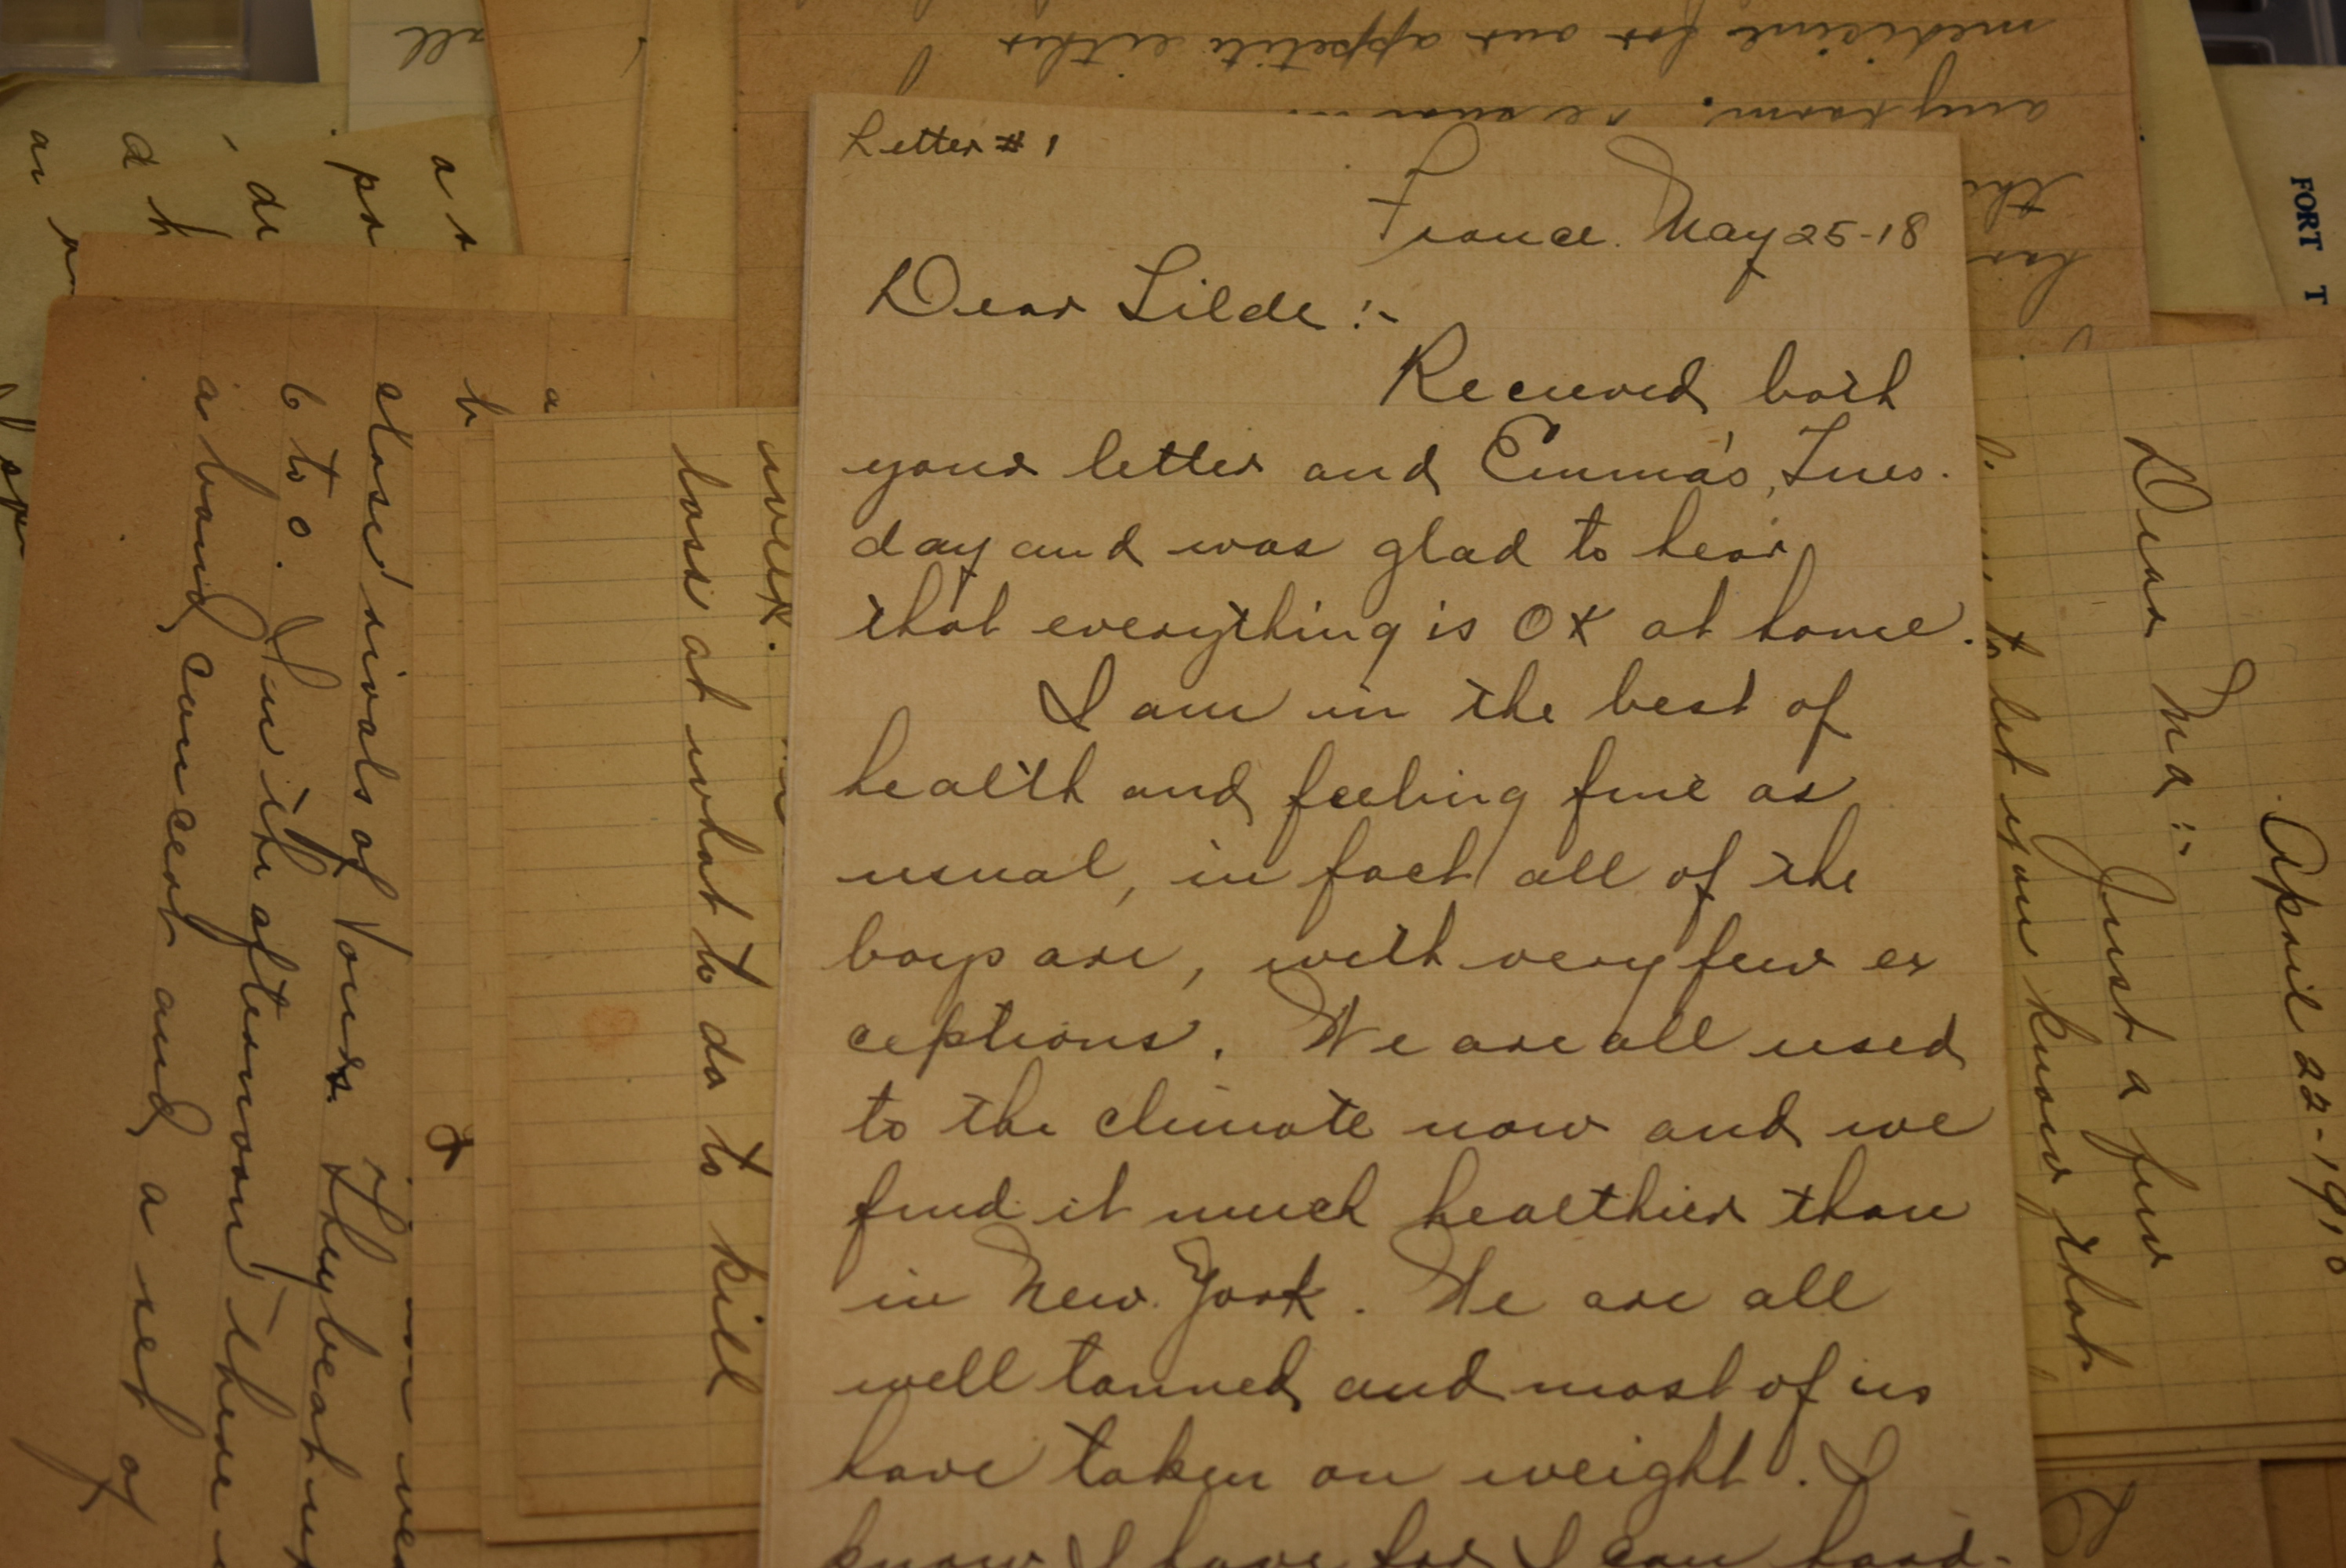 Letter # 1
France. May 25-18
Dear Lilde :-
Recieved both
your letter and Emma's, Tues.
day and was glad to hear
that everything is OK at home.
I am in the best of
health and feeling fine as
usual, in fact all of the
boys are, with very few ex
ceptions. We are all used
to the climate now and we
find it much healthier than
in New York. We are all
well tanned and most of us
have taken on weight. I
know I have for I can hard-
medicine for our appetite either
any harm.
all
FORT T
Dear Ma :-
April 22-1918
Just a few
to let you know that
week.
loss at what to do to kill
close rivals of Yours. They beat us
6 to 0. In the afternoon there
a band concert and a set of